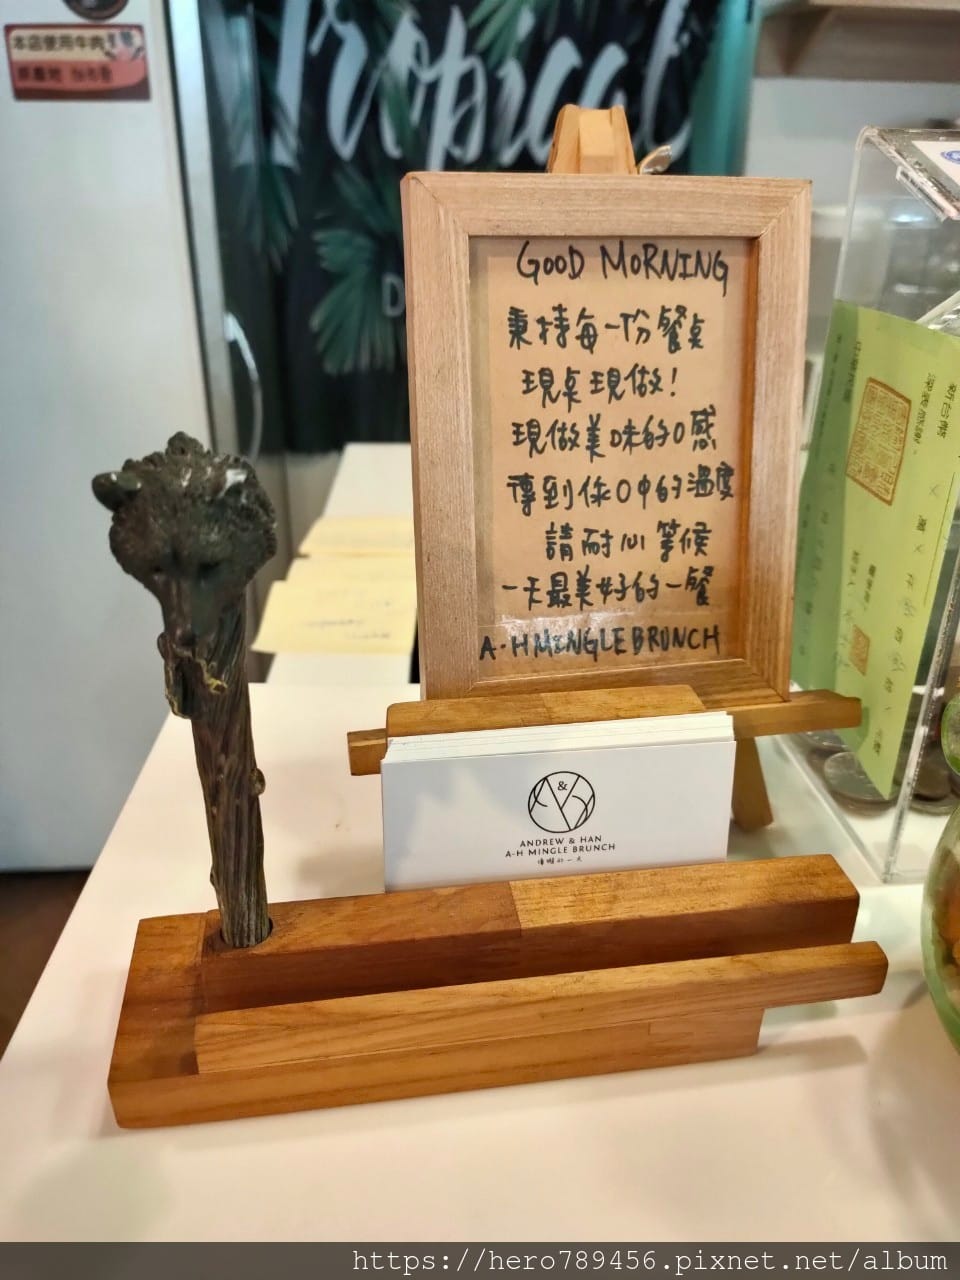 本店使用牛肉
原產地
Tropical
D
GOOD MORNING
秉持每一份餐桌
現桌現做!
現做美味的口感
傳到你口中的溫度
請耐心等候
一天最美好的一餐
A·H MINGLE BRUNCH
&
ANDREW & HAN
A-H MINGLE BRUNCH
的一天
新台幣
https://hero789456.pixnet.net/album